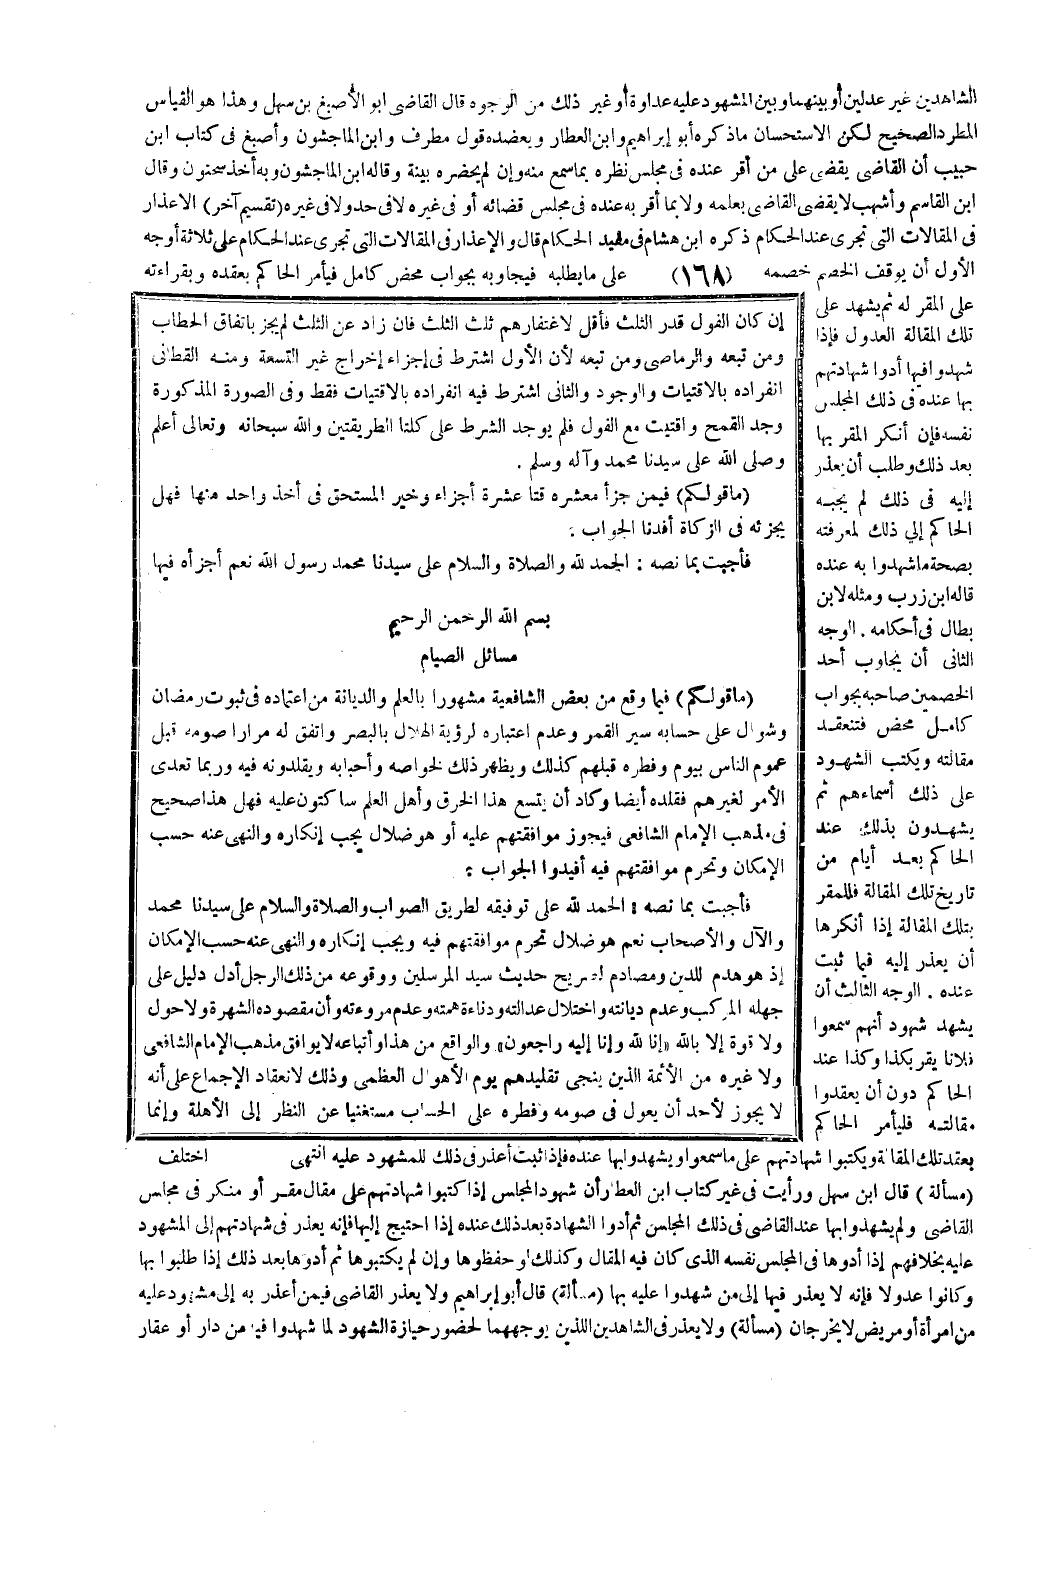 الشاهدين غير عدلين أو بينهما وبين المشهود عليه عداوة أو غير ذلك من الوجوه قال القاضى ابو الأصبغ بن سهل وهذا هو القياس
المطرد الصحيح لكن الاستحسان ماذكره أبو إبراهيم وابن العطار ويعضده قول مطرف وابن الماجشون وأصبغ فى كتاب ابن
حبيب أن القاضى يقضى على من أقر عنده فى مجلس نظره بما سمع منه وإن لم يحضره بينة وقاله ابن الماجشون وبه أخذ سحنون وقال
ابن القاسم وأشهب لا يقضى القاضى بعلمه ولا بما أقر به عنده فى مجلس قضائه أو فى غيره لا فى حد ولا فى غيره (تقسيم آخر) الاعذار
فى المقالات التى تجرى عند الحكام ذكره ابن هشام فى مفيد الحكام قال والإعذار فى المقالات التى تجرى عند الحكام على ثلاثة أوجه
الأول أن يوقف الخصم خصمه (١٦٨) على مايطلبه فيجاوبه بجواب محض كامل فيأمر الحاكم بعقده وبقراءته
على المقر له ثم يشهد على
تلك المقالة العدول فإذا
شهدوا فيها أدوا شهادتهم
بها عنده فى ذلك المجلس
نفسه فإن أنكر المقر بها
بعد ذلك وطلب أن يعذر
إليه فى ذلك لم يجبه
الحاكم إلى ذلك لمعرفته
بصحة ماشهدوا به عنده
قاله ابن زرب ومثله لابن
بطال فى أحكامه . الوجه
الثانى أن يجاوب أحد
الخصمين صاحبه بجواب
كامل محض فتنعقد
مقالته ويكتب الشهود
على ذلك أسماءهم ثم
يشهدون بذلك عند
الحاكم بعد أيام من
تاريخ تلك المقالة فللمقر
بتلك المقالة إذا أنكرها
أن يعذر إليه فيما ثبت
عنده . الوجه الثالث أن
يشهد شهود أنهم سمعوا
فلانا يقر بكذا وكذا عند
الحاكم دون أن يعقدوا
مقالته فليأمر الحاكم
بعقد تلك المقالة ويكتبوا شهادتهم على ماسمعوا ويشهدوا بها عنده فإذا ثبت أعذر فى ذلك للمشهود عليه انتهى اختلف
(مسألة) قال ابن سهل ورأيت فى غير كتاب ابن العطار أن شهود المجلس إذا كتبوا شهادتهم على مقال مقر أو منكر فى مجلس
القاضى ولم يشهدوا بها عند القاضى فى ذلك المجلس ثم أدوا الشهادة بعد ذلك عنده إذا احتيج إليها فإنه يعذر فى شهادتهم إلى المشهود
عليه بخلافهم إذا أدوها فى المجلس نفسه الذى كان فيه المقال وكذلك لو حفظوها وإن لم يكتبوها ثم أدوها بعد ذلك إذا طلبوا بها
وكانوا عدولا فإنه لا يعذر فيها إلى من شهدوا عليه بها (مسألة) قال أبو إبراهيم ولا يعذر القاضى فيمن أعذر به إلى مشهود عليه
من امرأة أو مريض لا يخرجان (مسألة) ولا يعذر فى الشاهدين اللذين يوجههما لحضور حيازة الشهود لما شهدوا فيه من دار أو عقار
إن كان الفول قدر الثلث فأقل لاغتفارهم ثلث الثلث فان زاد عن الثلث لم يجز باتفاق الحطاب
ومن تبعه والرماصى ومن تبعه لأن الأول اشترط فى إجزاء إخراج غير التسعة ومنه القطانى
انفراده بالاقتيات والوجود والثانى اشترط فيه انفراده بالاقتيات فقط وفى الصورة المذكورة
وجد القمح واقتيت مع الفول فلم يوجد الشرط على كلتا الطريقتين والله سبحانه وتعالى أعلم
وصلى الله على سيدنا محمد وآله وسلم .
(ماقولكم) فيمن جزأ معشره قتا عشرة أجزاء وخير المستحق فى أخذ واحد منها فهل
يجزئه فى الزكاة أفدنا الجواب :
فأجبت بما نصه : الحمد لله والصلاة والسلام على سيدنا محمد رسول الله نعم أجزأه فيها
بسم الله الرحمن الرحيم
مسائل الصيام
(ماقولكم) فيما وقع من بعض الشافعية مشهورا بالعلم والديانة من اعتماده فى ثبوت رمضان
وشوال على حسابه سير القمر وعدم اعتباره لرؤية الهلال بالبصر واتفق له مرارا صومه قبل
عموم الناس بيوم وفطره قبلهم كذلك ويظهر ذلك لخواصه وأحبابه ويقلدونه فيه وربما تعدى
الأمر لغيرهم فقلده أيضا وكاد أن يتسع هذا الخرق وأهل العلم ساكتون عليه فهل هذا صحيح
فى مذهب الإمام الشافعى فيجوز موافقتهم عليه أو هو ضلال يجب إنكاره والنهى عنه حسب
الإمكان وتحرم موافقتهم فيه أفيدوا الجواب :
فأجبت بما نصه : الحمد لله على توفيقه لطريق الصواب والصلاة والسلام على سيدنا محمد
والآل والأصحاب نعم هو ضلال تحرم موافقتهم فيه ويجب إنكاره والنهى عنه حسب الإمكان
إذ هو هدم للدين ومصادم لصريح حديث سيد المرسلين ووقوعه من ذلك الرجل أدل دليل على
جهله المركب وعدم ديانته واختلال عدالته ودناءة همته وعدم مروءته وأن مقصوده الشهرة ولا حول
ولا قوة إلا بالله «إنا لله وإنا إليه راجعون» والواقع من هذا وأتباعه لا يوافق مذهب الإمام الشافعى
ولا غيره من الأئمة الذين ينجى تقليدهم يوم الأهوال العظمى وذلك لانعقاد الإجماع على أنه
لا يجوز لأحد أن يعول فى صومه وفطره على الحساب مستغنيا عن النظر إلى الأهلة وإنما